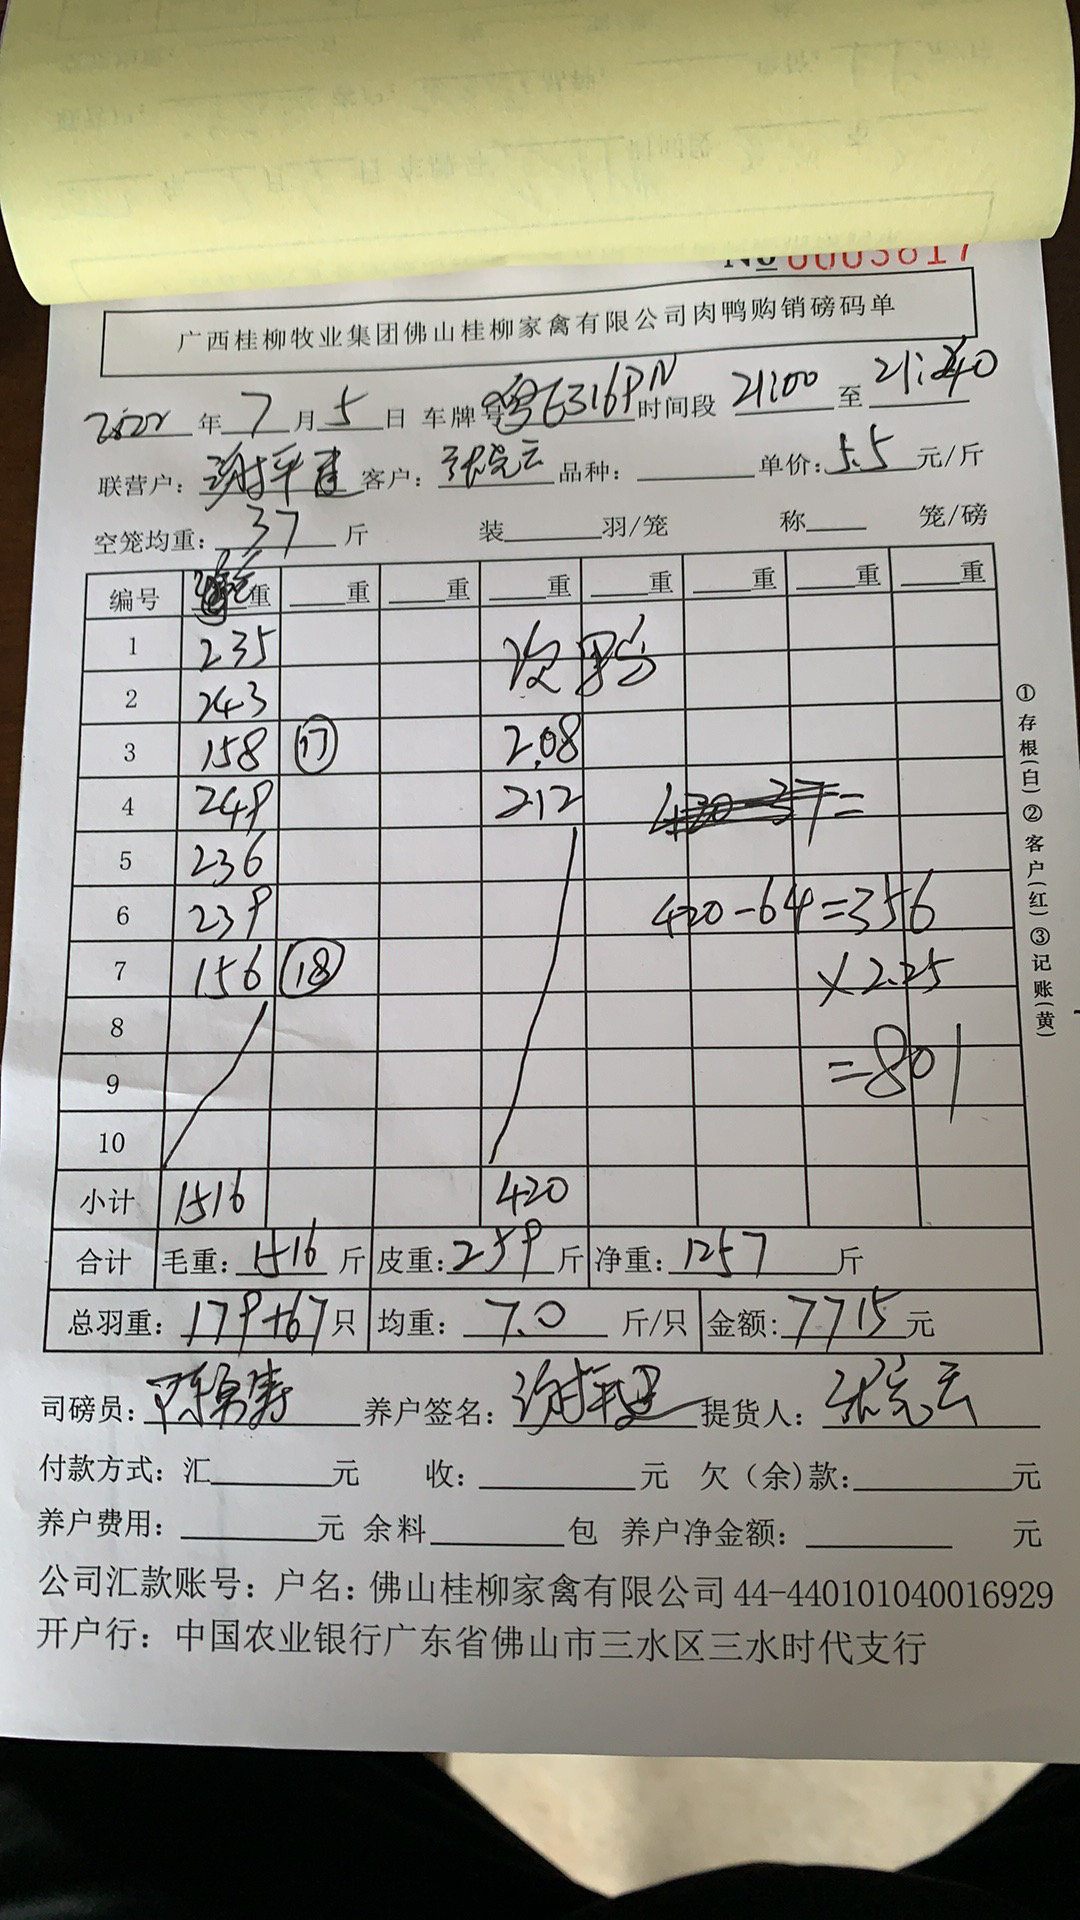 № 0003817
广西桂柳牧业集团佛山桂柳家禽有限公司肉鸭购销磅码单
2022 年 7 月 5 日 车牌号 粤E316PN 时间段 21:00 至 21:40
联营户： 谢平建 客户： 张完云 品种： 单价： 5.5 元/斤
空笼均重： 37 斤 装 羽/笼 称 笼/磅
编号 重 重 重 重 重 重 重 重
1 235 次男鸟
2 243
3 158 ⑰ 2.08
4 249 212 420-37=
5 236
6 239 420-64=356
7 156 ⑱ ×2.25
8
9 =801
10
小计 1516 420
合计 毛重： 1516 斤 皮重： 259 斤 净重： 1257 斤
总羽重： 179+67 只 均重： 7.0 斤/只 金额: 7715 元
司磅员： 养户签名： 谢平建 提货人： 张完云
付款方式：汇 元 收： 元 欠（余)款： 元
养户费用： 元 余料 包 养户净金额： 元
公司汇款账号：户名：佛山桂柳家禽有限公司 44-440101040016929
开户行：中国农业银行广东省佛山市三水区三水时代支行
①存根(白)②客户(红)③记账(黄)